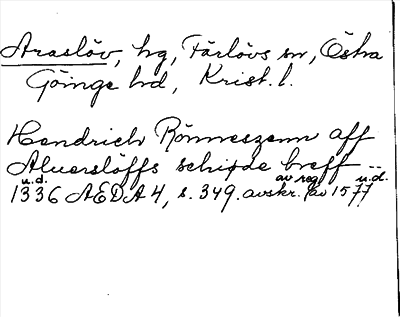 Araslöv, hg, Färlövs sn, Östra
Göinge hd, Krist. l.
Hendrich Rönneszenn aff
Aluerslöffs schiøde breff
u.d. av reg. u.d.
1336 AEDA 4, s. 349. avskr. av 1577